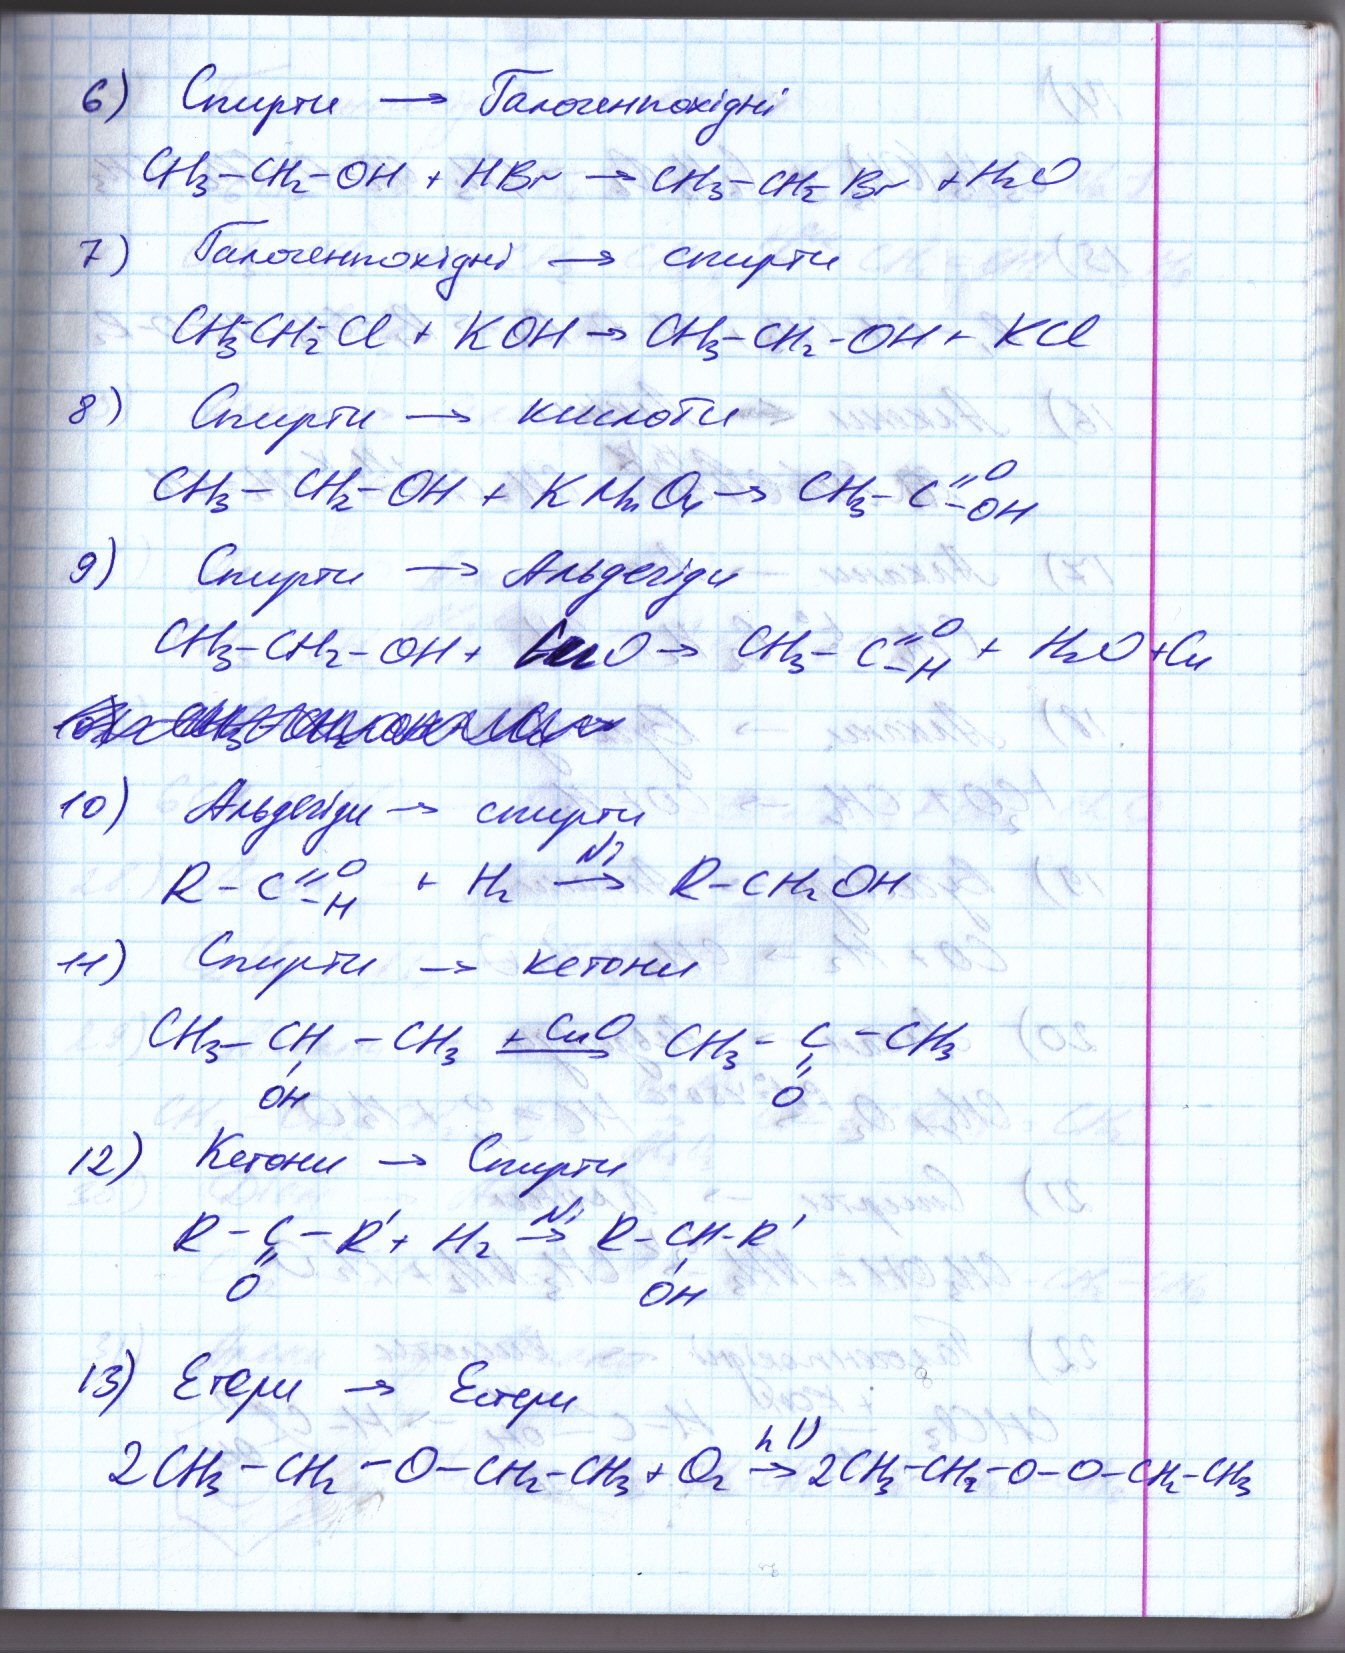 6) Спирти → Галогенпохідні
CH₃–CH₂–OH + HBr → CH₃–CH₂–Br + H₂O
7) Галогенпохідні → спирти
CH₃–CH₂–Cl + KOH → CH₃–CH₂–OH + KCl
8) Спирти → кислоти
CH₃–CH₂–OH + KMnO₄ → CH₃–C=O
–OH
9) Спирти → Альдегіди
CH₃–CH₂–OH + CuO → CH₃–C=O + H₂O + Cu
–H
10) Альдегіди → спирти
Ni
R–C=O + H₂ → R–CH₂OH
–H
11) Спирти → кетони
CH₃–CH–CH₃ +CuO → CH₃–C–CH₃
OH O
12) Кетони → Спирти
Ni
R–C–R' + H₂ → R–CH–R'
O OH
13) Етери → Естери
hν
2CH₃–CH₂–O–CH₂–CH₃ + O₂ → 2CH₃–CH₂–O–O–CH₂–CH₃